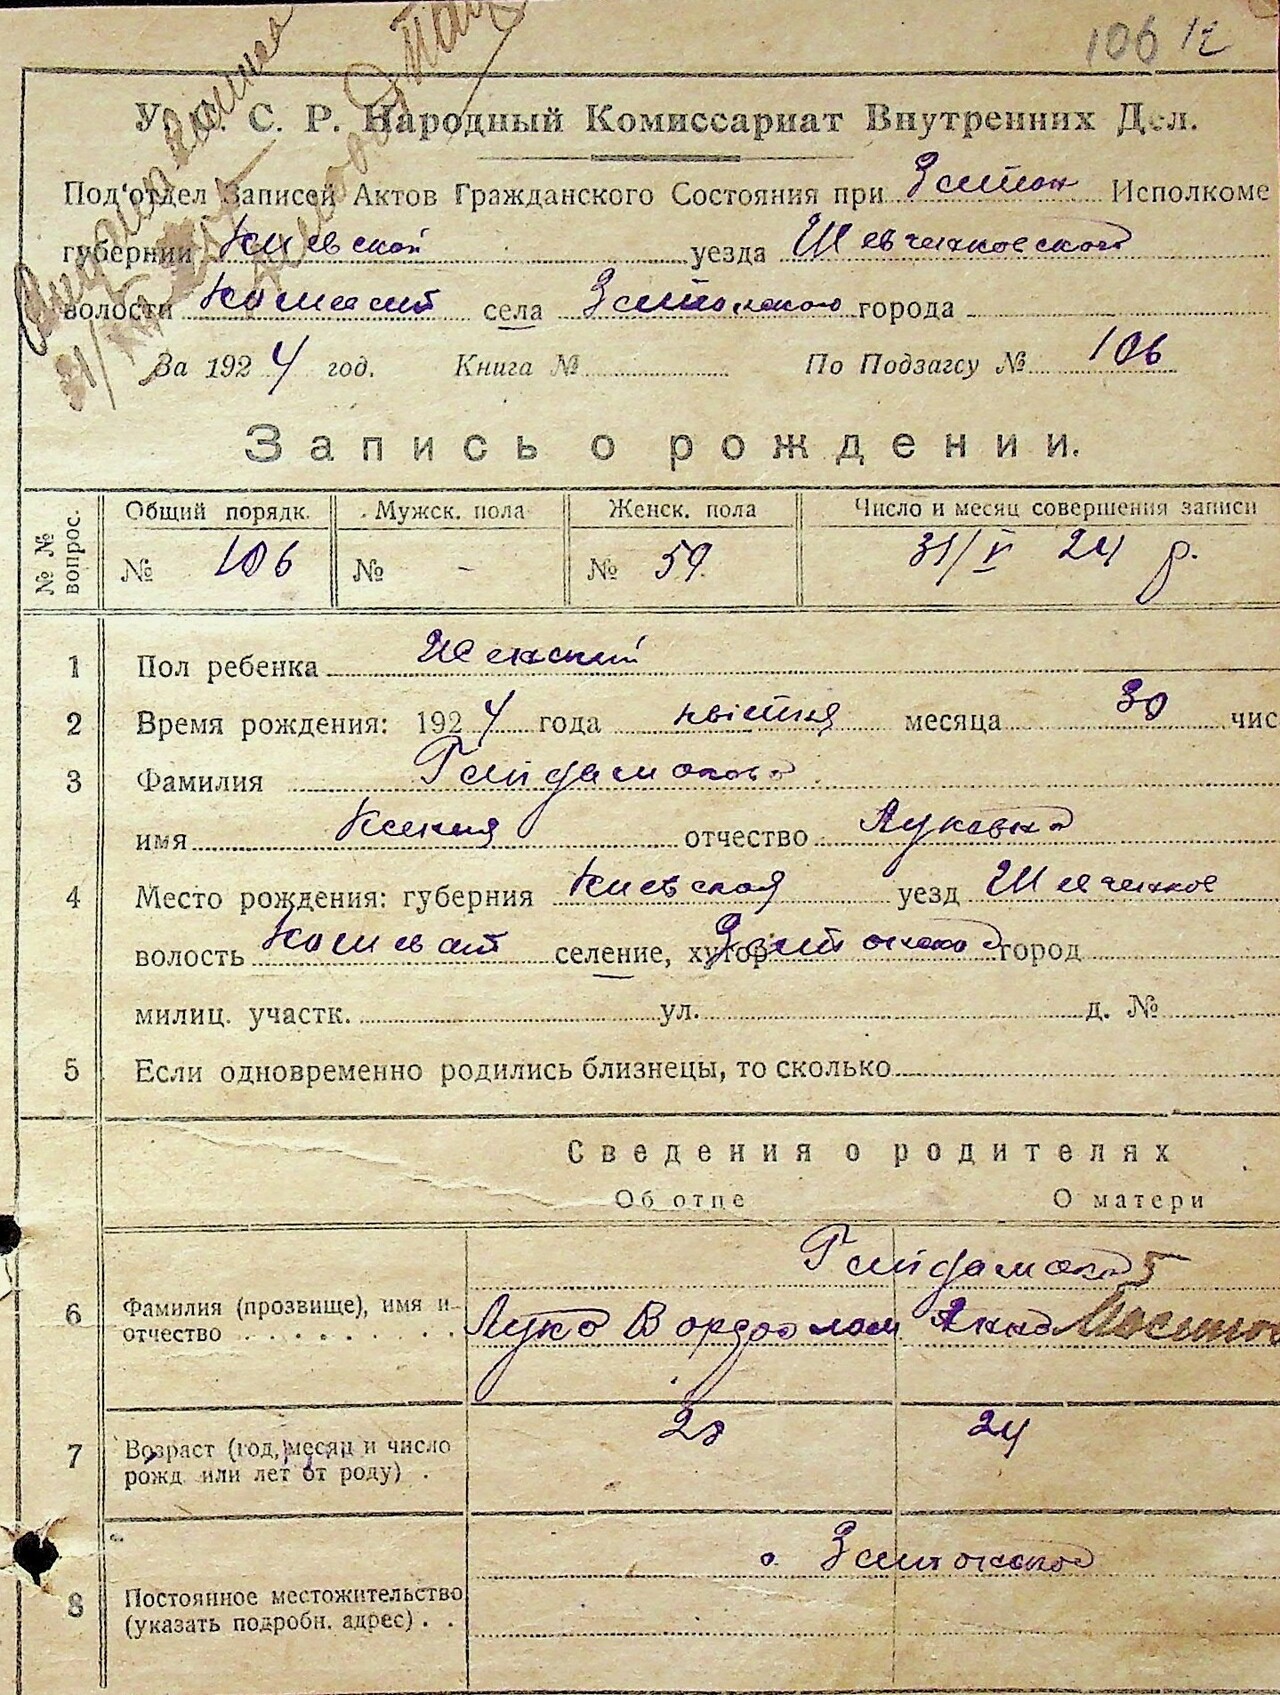 106 12
У. С. С. Р. Народный Комиссариат Внутренних Дел.
Под'отдел Записей Актов Гражданского Состояния при Исполкоме
губернии Киевской уезда Шевченковского
волости села города
За 1924 год. Книга № По Подзагсу № 106
Запись о рождении.
№ № вопрос. Общий порядк. Мужск. пола Женск. пола Число и месяц совершения записи
№ 106 № - № 59 31/V 24 р.
1 Пол ребенка Женский
2 Время рождения: 1924 года квітня месяца 30 чис
3 Фамилия Гайдамакова
имя Ксения отчество Луковна
4 Место рождения: губерния Киевская уезд Шевченков
волость селение, хутор город
милиц. участк. ул. д. №
5 Если одновременно родились близнецы, то сколько
Сведения о родителях
Об отце О матери
6 Фамилия (прозвище), имя и отчество
Лука Анна
7 Возраст (год, месяц и число рожд. или лет от роду) . 28 24
8 Постоянное местожительство (указать подробн. адрес) . .